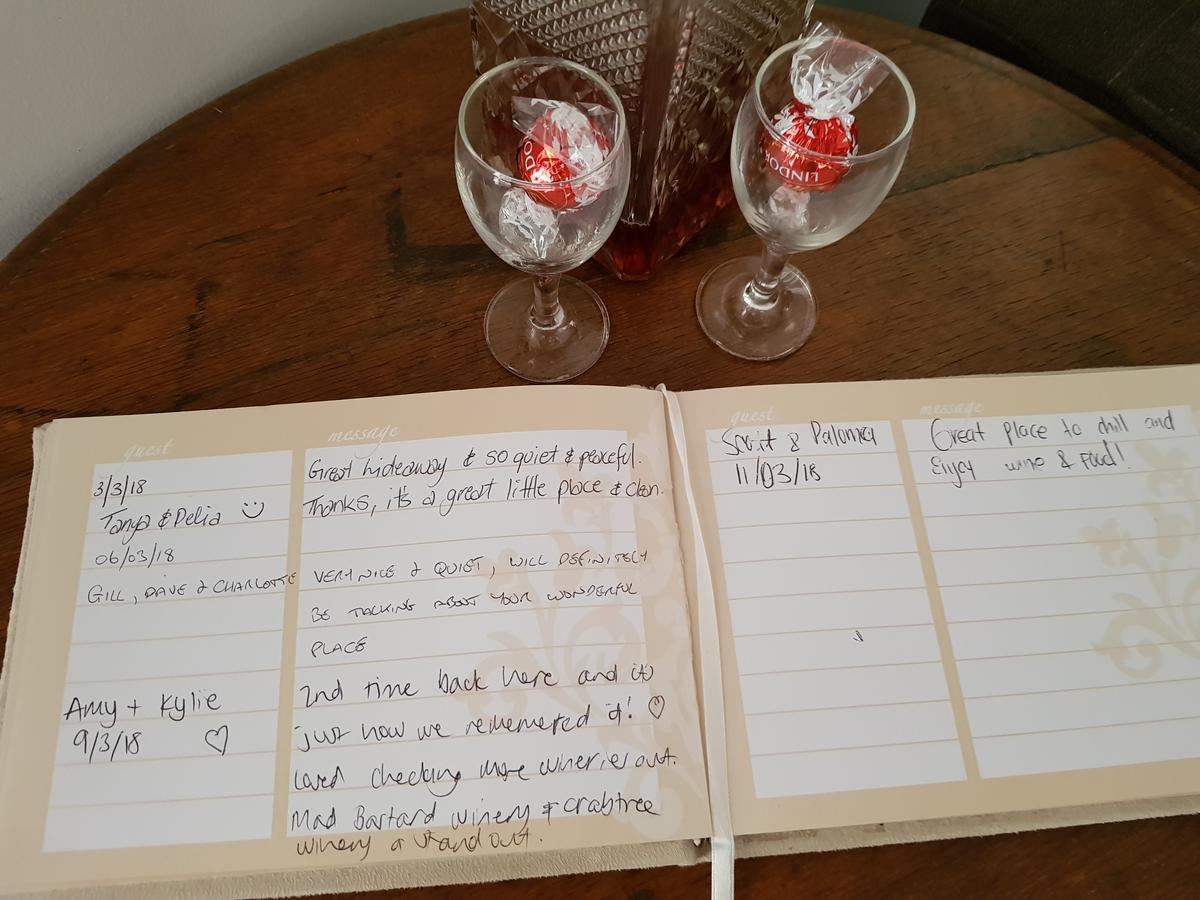 LINDOR
LINDOR
guest
message
3/3/18
Great hideaway & so quiet & peaceful.
Tanya & Delia
Thanks, it's a great little place & clean.
06/03/18
GILL, DAVE & CHARLOTTE
VERY NICE & QUIET, WILL DEFINITELY
BE TALKING ABOUT YOUR WONDERFUL
PLACE
Amy + Kylie
9/3/18
2nd time back here and it's
just how we rememered it!
Loved checking more wineries out.
Mad Bastard winery & Crabtree
winery a standout.
guest
message
& Paloma
11/03/18
Great place to chill and
Enjoy wine & Food!